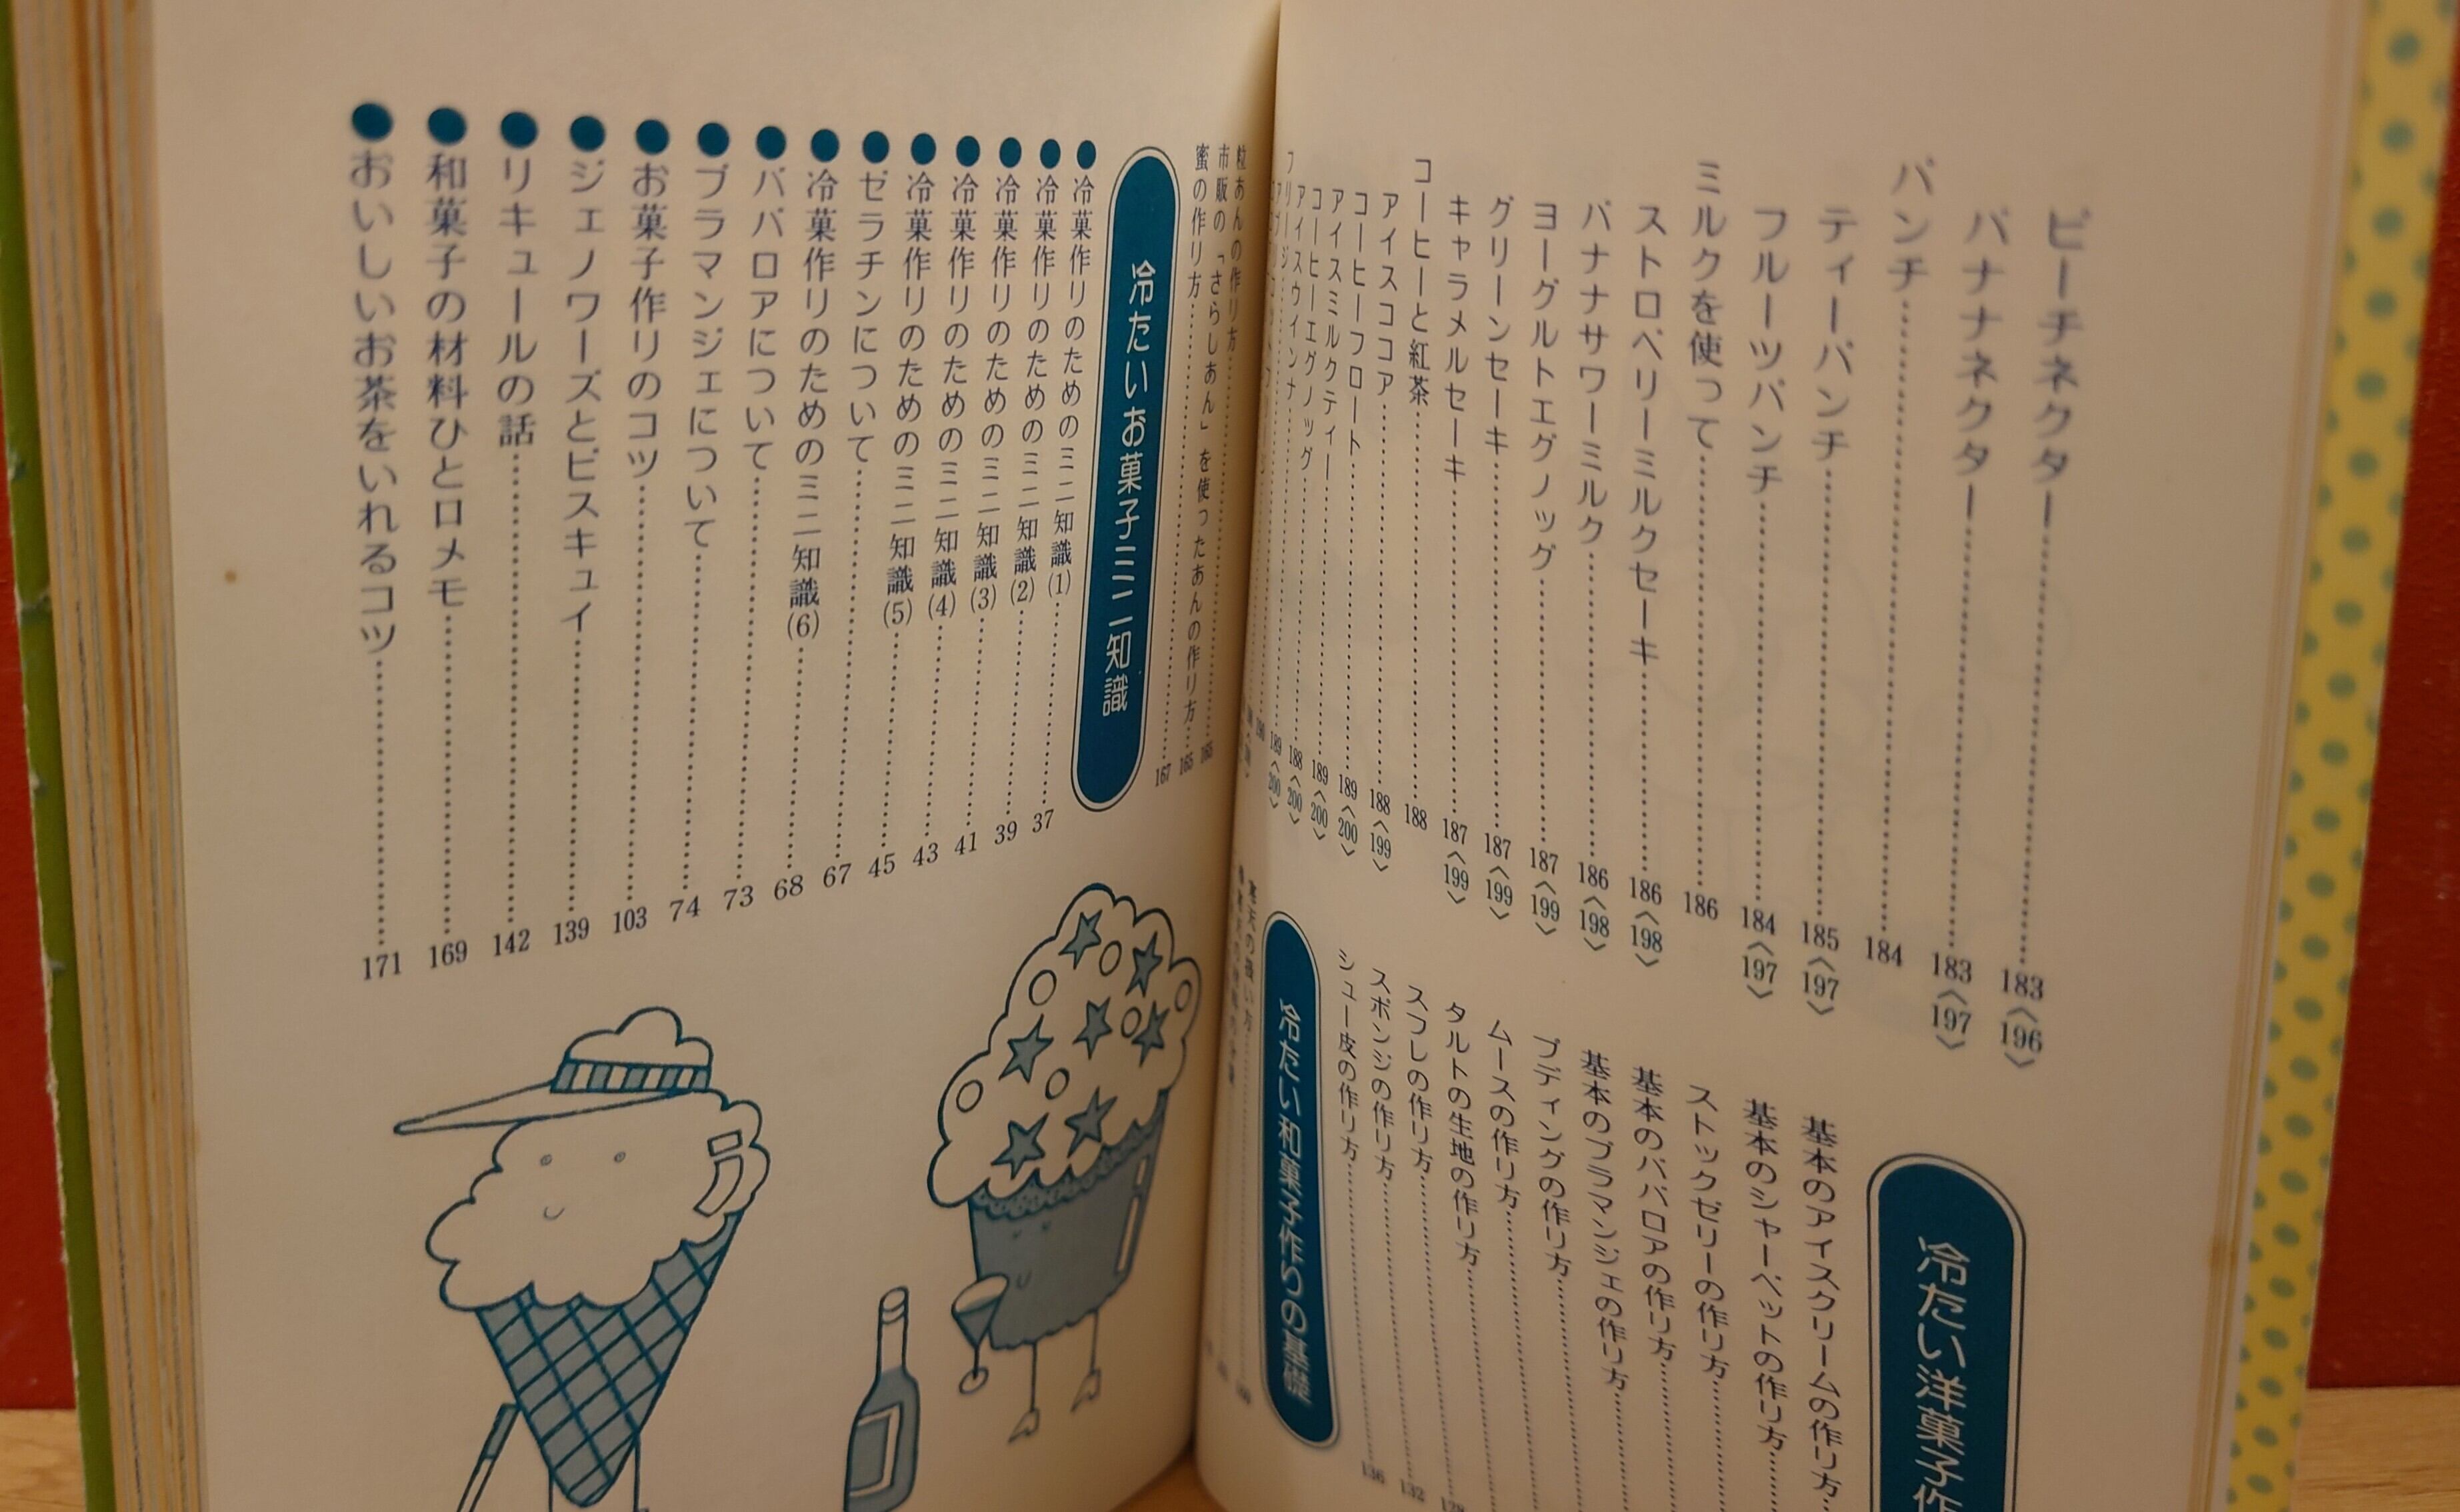 ピーチネクター……183〈196〉
バナナネクター……183〈197〉
パンチ……184
ティーパンチ……185〈197〉
フルーツパンチ……184〈197〉
ミルクを使って……186
ストロベリーミルクセーキ……186〈198〉
バナナサワーミルク……186〈198〉
ヨーグルトエグノッグ……187〈199〉
グリーンセーキ……187〈199〉
キャラメルセーキ……187〈199〉
コーヒーと紅茶……188
アイスココア……188〈199〉
コーヒーフロート……189〈200〉
アイスミルクティー……189〈200〉
コーヒーエグノッグ……188〈200〉
アイスウィンナ……189〈200〉
冷たい洋菓子作
基本のアイスクリームの作り方……
基本のシャーベットの作り方……
ストックゼリーの作り方……
基本のババロアの作り方……
基本のブラマンジェの作り方……
プディングの作り方……
ムースの作り方……
タルトの生地の作り方……128
スフレの作り方……132
スポンジの作り方……136
シュー皮の作り方……
冷たい和菓子作りの基礎
寒天の扱い方……
粒あんの作り方……165
市販の「さらしあん」を使ったあんの作り方……165
蜜の作り方……167
冷たいお菓子ミニ知識
●冷菓作りのためのミニ知識(1)……37
●冷菓作りのためのミニ知識(2)……39
●冷菓作りのためのミニ知識(3)……41
●冷菓作りのためのミニ知識(4)……43
●冷菓作りのためのミニ知識(5)……45
●ゼラチンについて……67
●冷菓作りのためのミニ知識(6)……68
●ババロアについて……73
●ブラマンジェについて……74
●お菓子作りのコツ……103
●ジェノワーズとビスキュイ……139
●リキュールの話……142
●和菓子の材料ひと口メモ……169
●おいしいお茶をいれるコツ……171